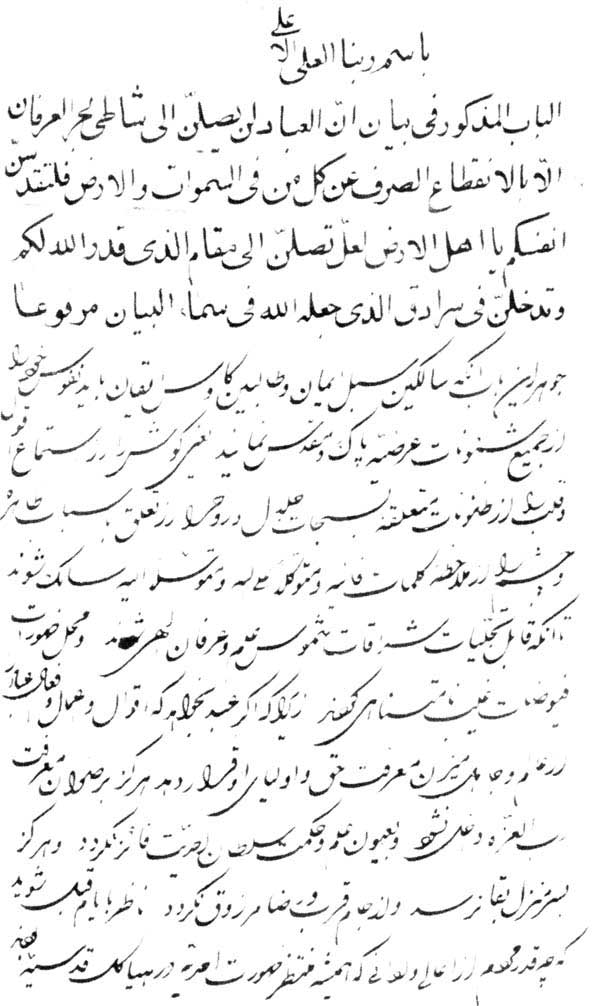 باسم ربنا العلی الاعلی
الباب المذکور فی بیان انّ العباد لن یصلنّ الی شاطی بحر العرفان
الّا بالانقطاع الصرف عن کل من فی السموات والارض فلتقدسنّ
انفسکم یا اهل الارض لعلّ تصلنّ الی مقام الذی قدر الله لکم
وتدخلنّ فی سرادق الذی جعله الله فی سماء البیان مرفوعا
جوهر این باب آنکه سالکین سبل ایمان و طالبین کاوس ایقان باید نفوس خود را
از جمیع شئونات عرضیه پاک و مقدس نمایند یعنی گوش را از استماع اقوال
و قلب را از ظنونات متعلقه بسبحات جلال و روح را از تعلق باسباب ظاهره
و چشم را از ملاحظه کلمات فانیه و متوکلاً علی الله و متوسلاً الیه سالک شوند
تا آنکه قابل تجلیات اشراقات شموس علم و عرفان الهی شوند و محل ظهورات
فیوضات غیب نامتناهی گردند زیرا که اگر عبد بخواهد که اقوال و اعمال و افعال عباد را
از عالم و جاهل میزان معرفت حق و اولیای او قرار دهد هرگز برضوان معرفت
رب العزه داخل نشود و بعیون علم و حکمت سلطان احدیت فائز نگردد و هرگز
بسرمنزل بقا نرسد و از جام قرب و رضا مرزوق نگردد ناظر بایام قبل شوید
که چه قدر مردم از اعالی و ادانی که همیشه منتظر ظهورات احدیه در هیاکل قدسیه بوده‌اند